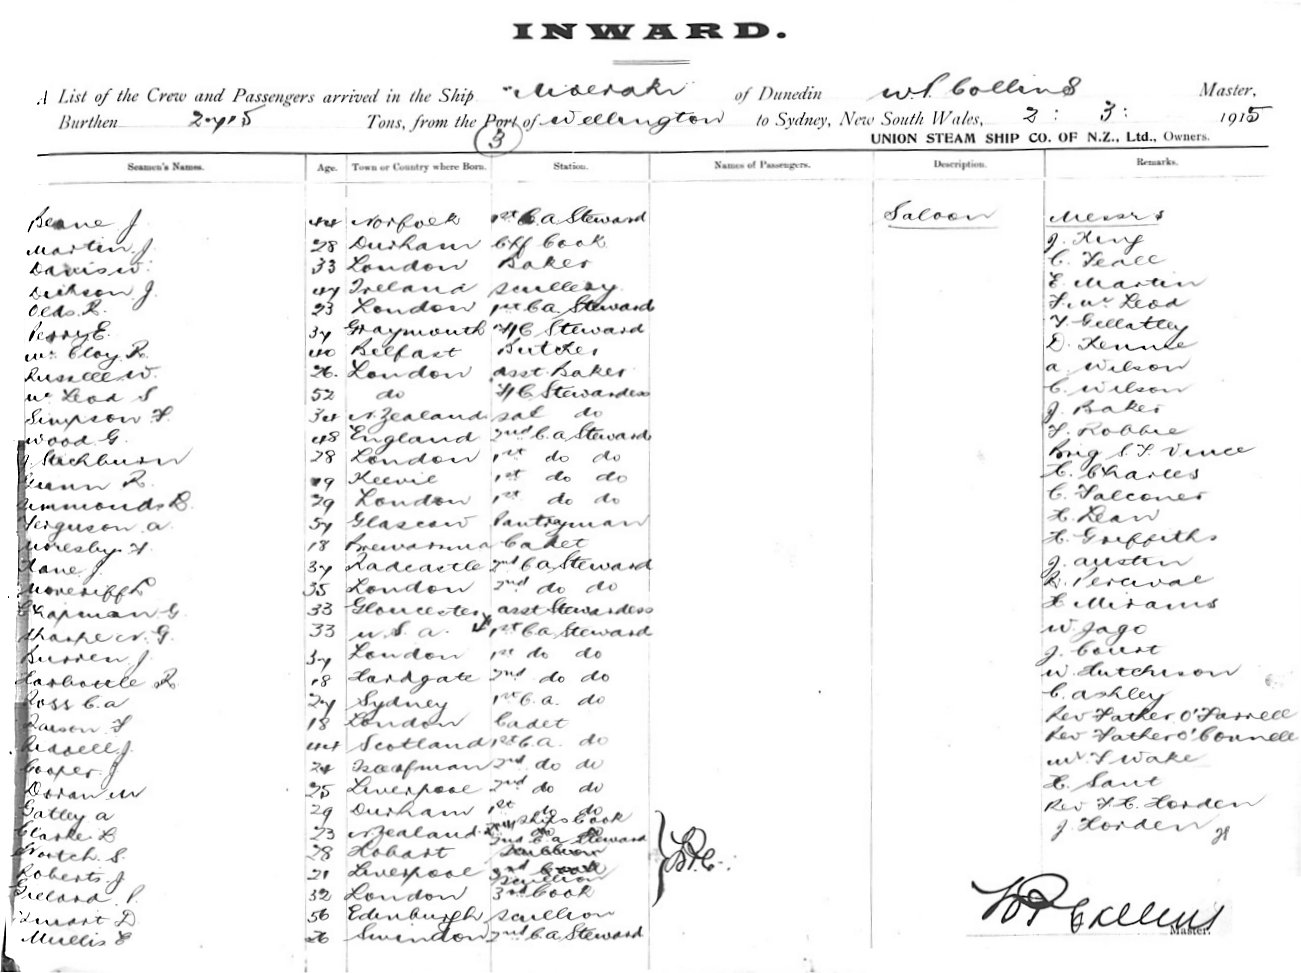 INWARD.
A List of the Crew and Passengers arrived in the Ship "Moeraki of Dunedin W.P. Collins Master,
Burthen 2715 Tons, from the Port of Wellington to Sydney, New South Wales, 2: 3: 1915
3
UNION STEAM SHIP CO. OF N.Z., Ltd., Owners.
Seamen's Names. Age. Town or Country where Born. Station. Names of Passengers. Description. Remarks.
Beane J. 44 Norfolk 1st C.a Steward Saloon Messrs
Martin J. 28 Durham Chf Cook J. King
Davis W. 33 London Baker C. Teall
Dickson J. 47 Ireland Scullery E. Martin
Olds R. 23 London 1st C.a. Steward F. Mc Leod
Perry E. 37 Graymouth F/C Steward F Gellatley
Mc Cloy R. 40 Belfast Butcher D. Rennie
Russell W. 26 London asst Baker a. Wilson
Mc Leod S 52 do F/C Stewardess C. Wilson
Simpson F. 34 N. Zealand Sal do J. Baker
Wood G. 48 England 2nd C.a Steward F. Robbie
J. Stackburn 28 London 1st do do Brig S. F Vince
Gunn R. 19 Keevil 1st do do H. Charles
Simmonds B. 29 London 1st do do C. Falconer
Ferguson a. 57 Glascow Pantryman H. Dean
Moresby F. 18 Brewarrina Cadet H. Griffiths
Kane J. 37 Tadcastle 2nd C.a Steward J. Austin
35 London 2nd do do R. Percival
Chapman G. 33 Gloucester asst Stewardess H. Mirams
Sharpe W. G. 33 U. S. a. 1st C.a Steward W. Jago
Burren J. 37 London 1st do do J. Court
Harbottle R. 18 Hardgate 2nd do do W Hutchison
Ross C. a 27 Sydney 1st C.a. do C. Ashley
Parson F 18 London Cadet Rev Father O'Farrell
Riddell J. 44 Scotland 1st C.a. do Rev Father O'Connell
Cooper J 24 2nd do do Mr F Wake
Doran M 25 Liverpool 2nd do do H. Sant
Gatley a 29 Durham 1st do do Rev F. H. Horden
Clarke L 23 N. Zealand Ships Cook 2nd C.a Steward J Horden
Gortch S. 28 Hobart Scullion
Roberts J 21 Liverpool 2nd Cook Scullion W.P.C.
Gellard P. 32 London 3rd Cook
Stuart D 56 Edinburgh Scullion
Mullis E 26 Swindon 2nd C.a Steward
W P Collins
Master.